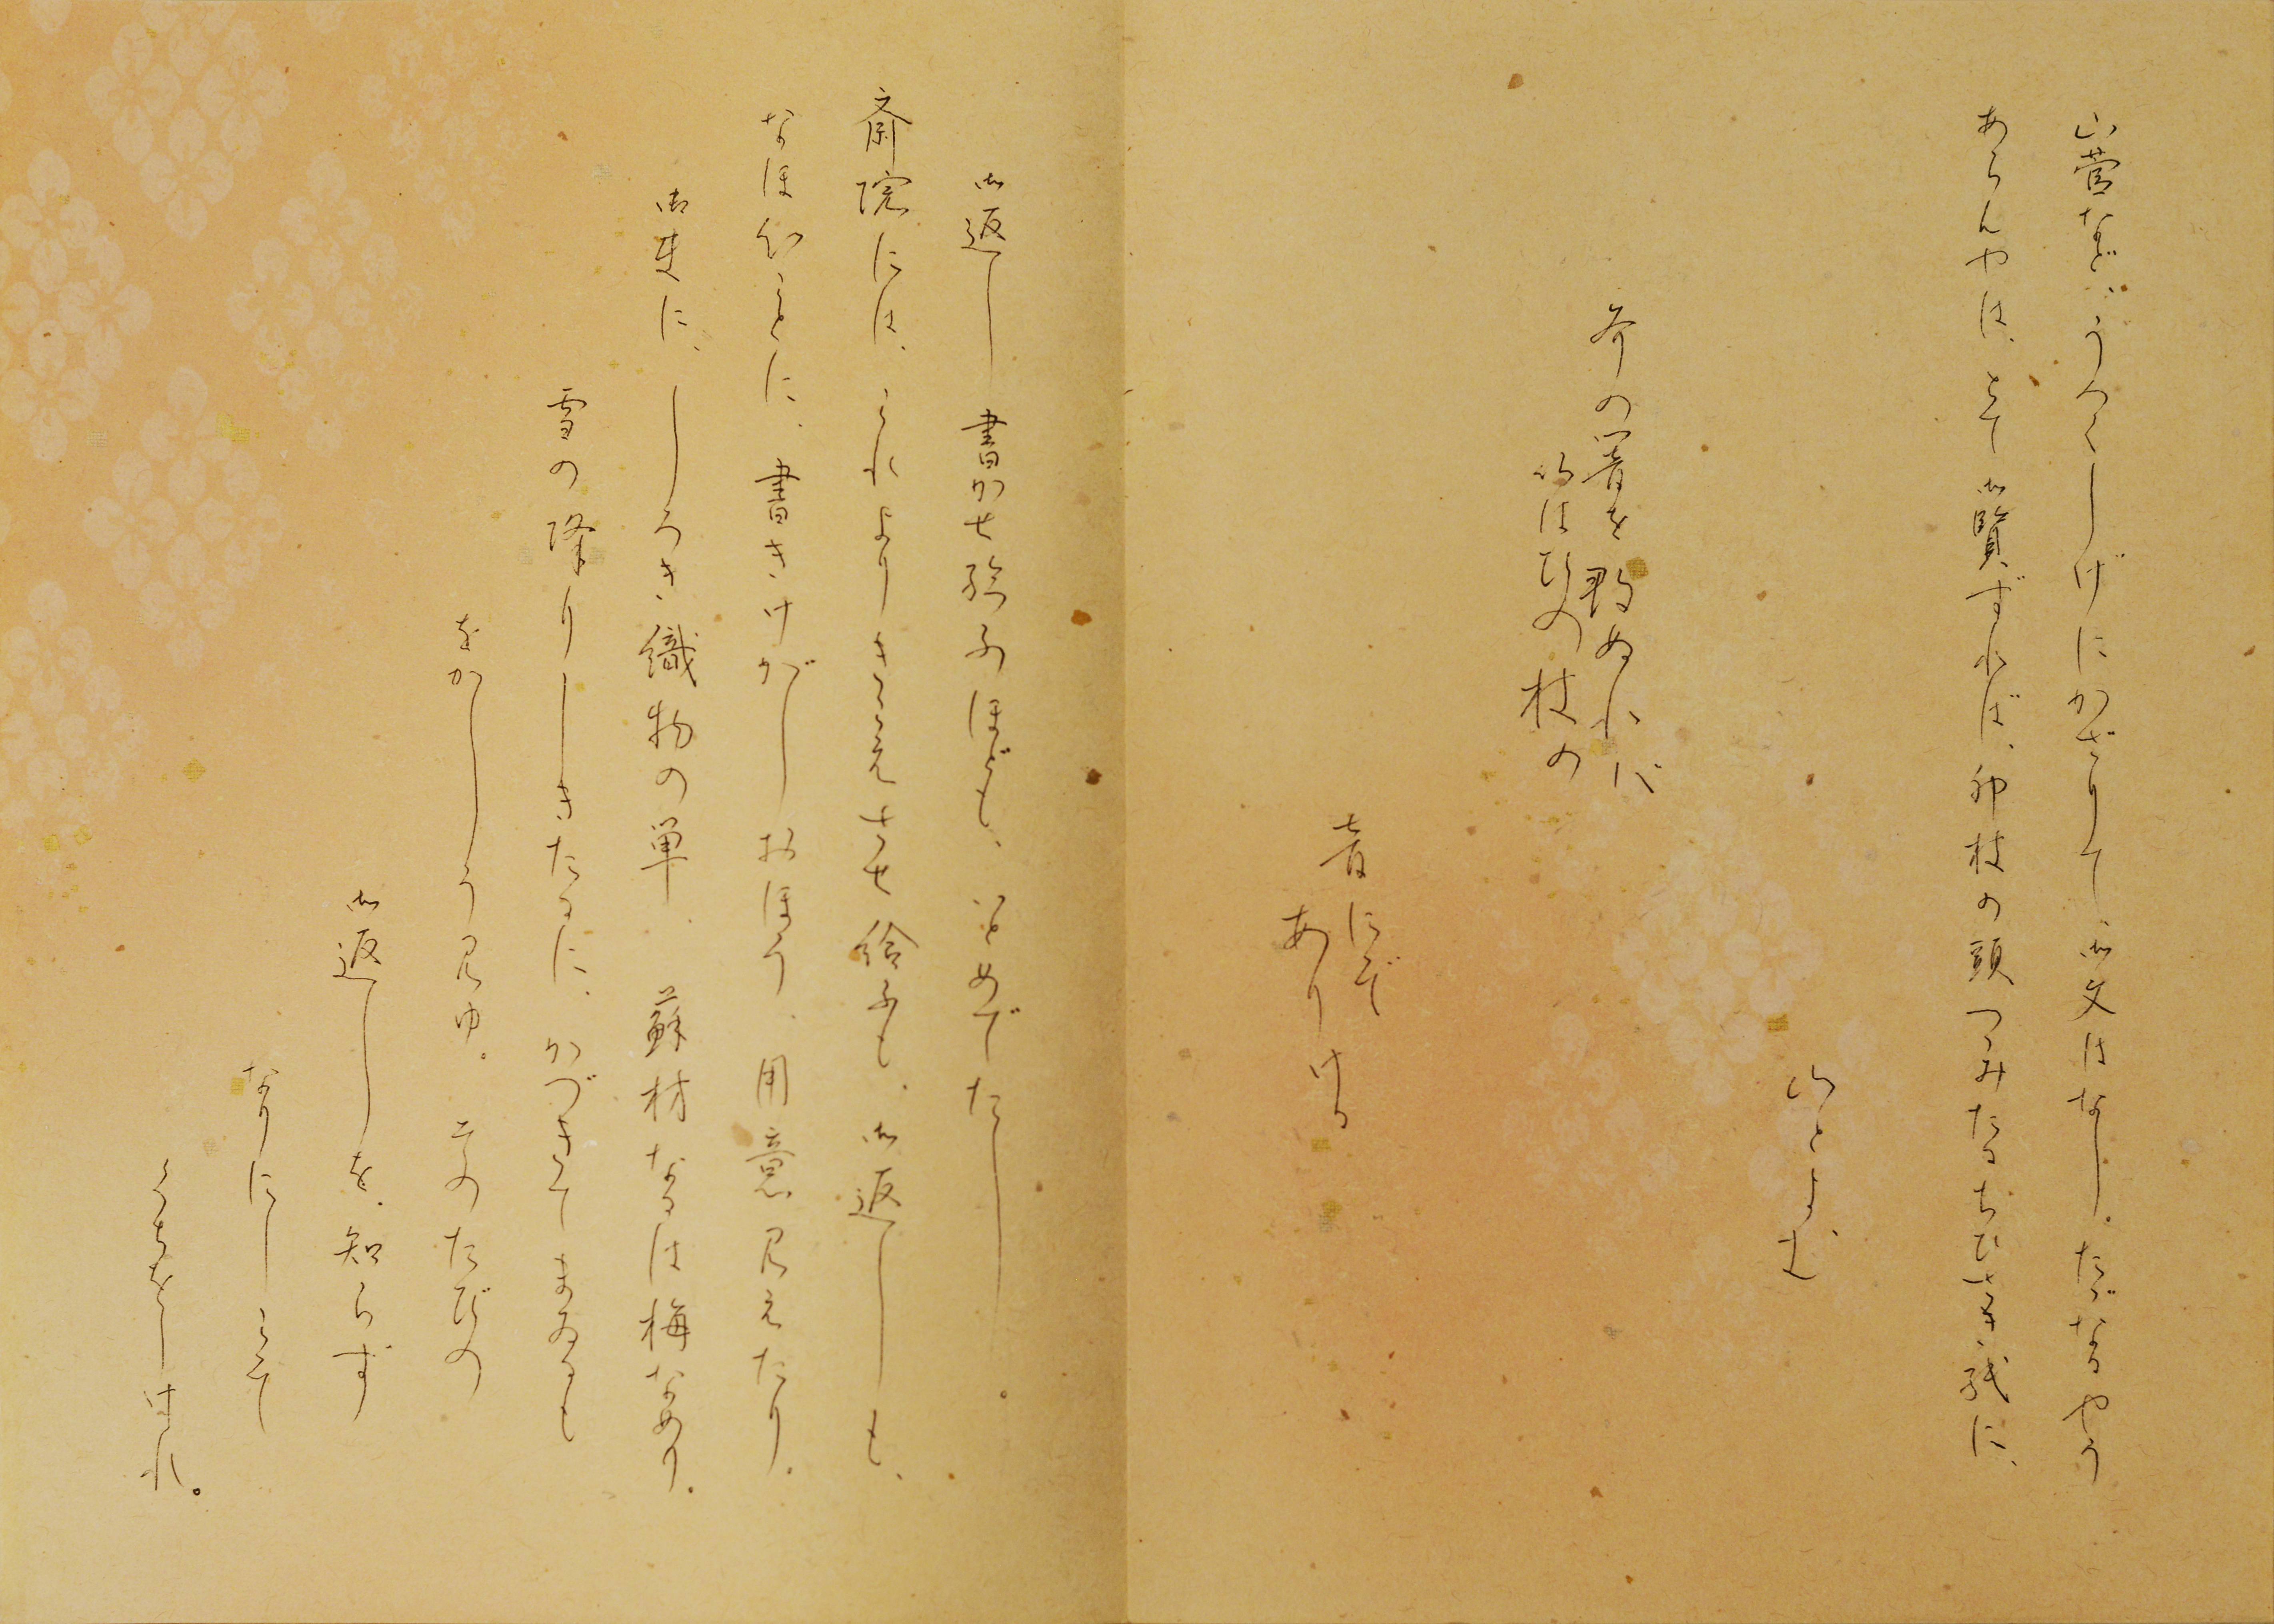 山菅など、うつくしげにかざりて、御文はなし。たゞなるやう
あらんやは、とて御覧ずれば、卯杖の頭つゝみたるちひさき紙に、
山とよむ
斧の響を尋ぬれば
いはひの杖の
音にぞ
ありける
御返し書かせ給ふほども、いとめでたし。
斎院には、これよりきこえさせ給ふも、御返しも、
なほ心ことに、書きけがしおほう、用意見えたり。
御使に、しろき織物の単、蘇枋なるは梅なめり。
雪の降りしきたるに、かづきてまゐるも
をかしう見ゆ。そのたびの
御返しを、知らず
なりにしこそ
くちをしけれ。